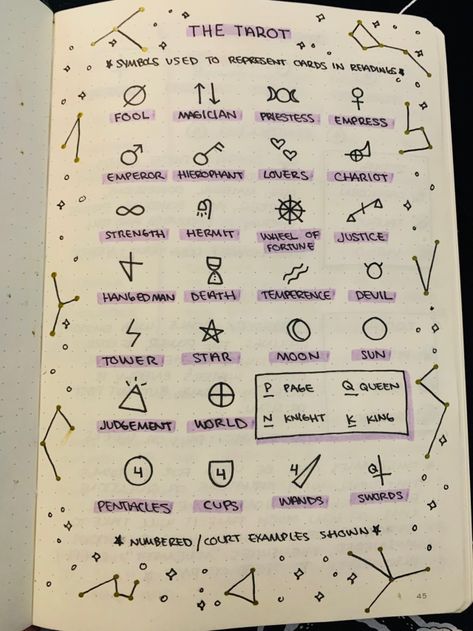 THE TAROT
* SYMBOLS USED TO REPRESENT CARDS IN READINGS *
FOOL MAGICIAN PRIESTESS EMPRESS
EMPEROR HIEROPHANT LOVERS CHARIOT
STRENGTH HERMIT WHEEL OF FORTUNE JUSTICE
HANGEDMAN DEATH TEMPERENCE DEVIL
TOWER STAR MOON SUN
P PAGE Q QUEEN
N KNIGHT K KING
JUDGEMENT WORLD
4 4 4 Q
PENTACLES CUPS WANDS SWORDS
* NUMBERED/COURT EXAMPLES SHOWN *
45